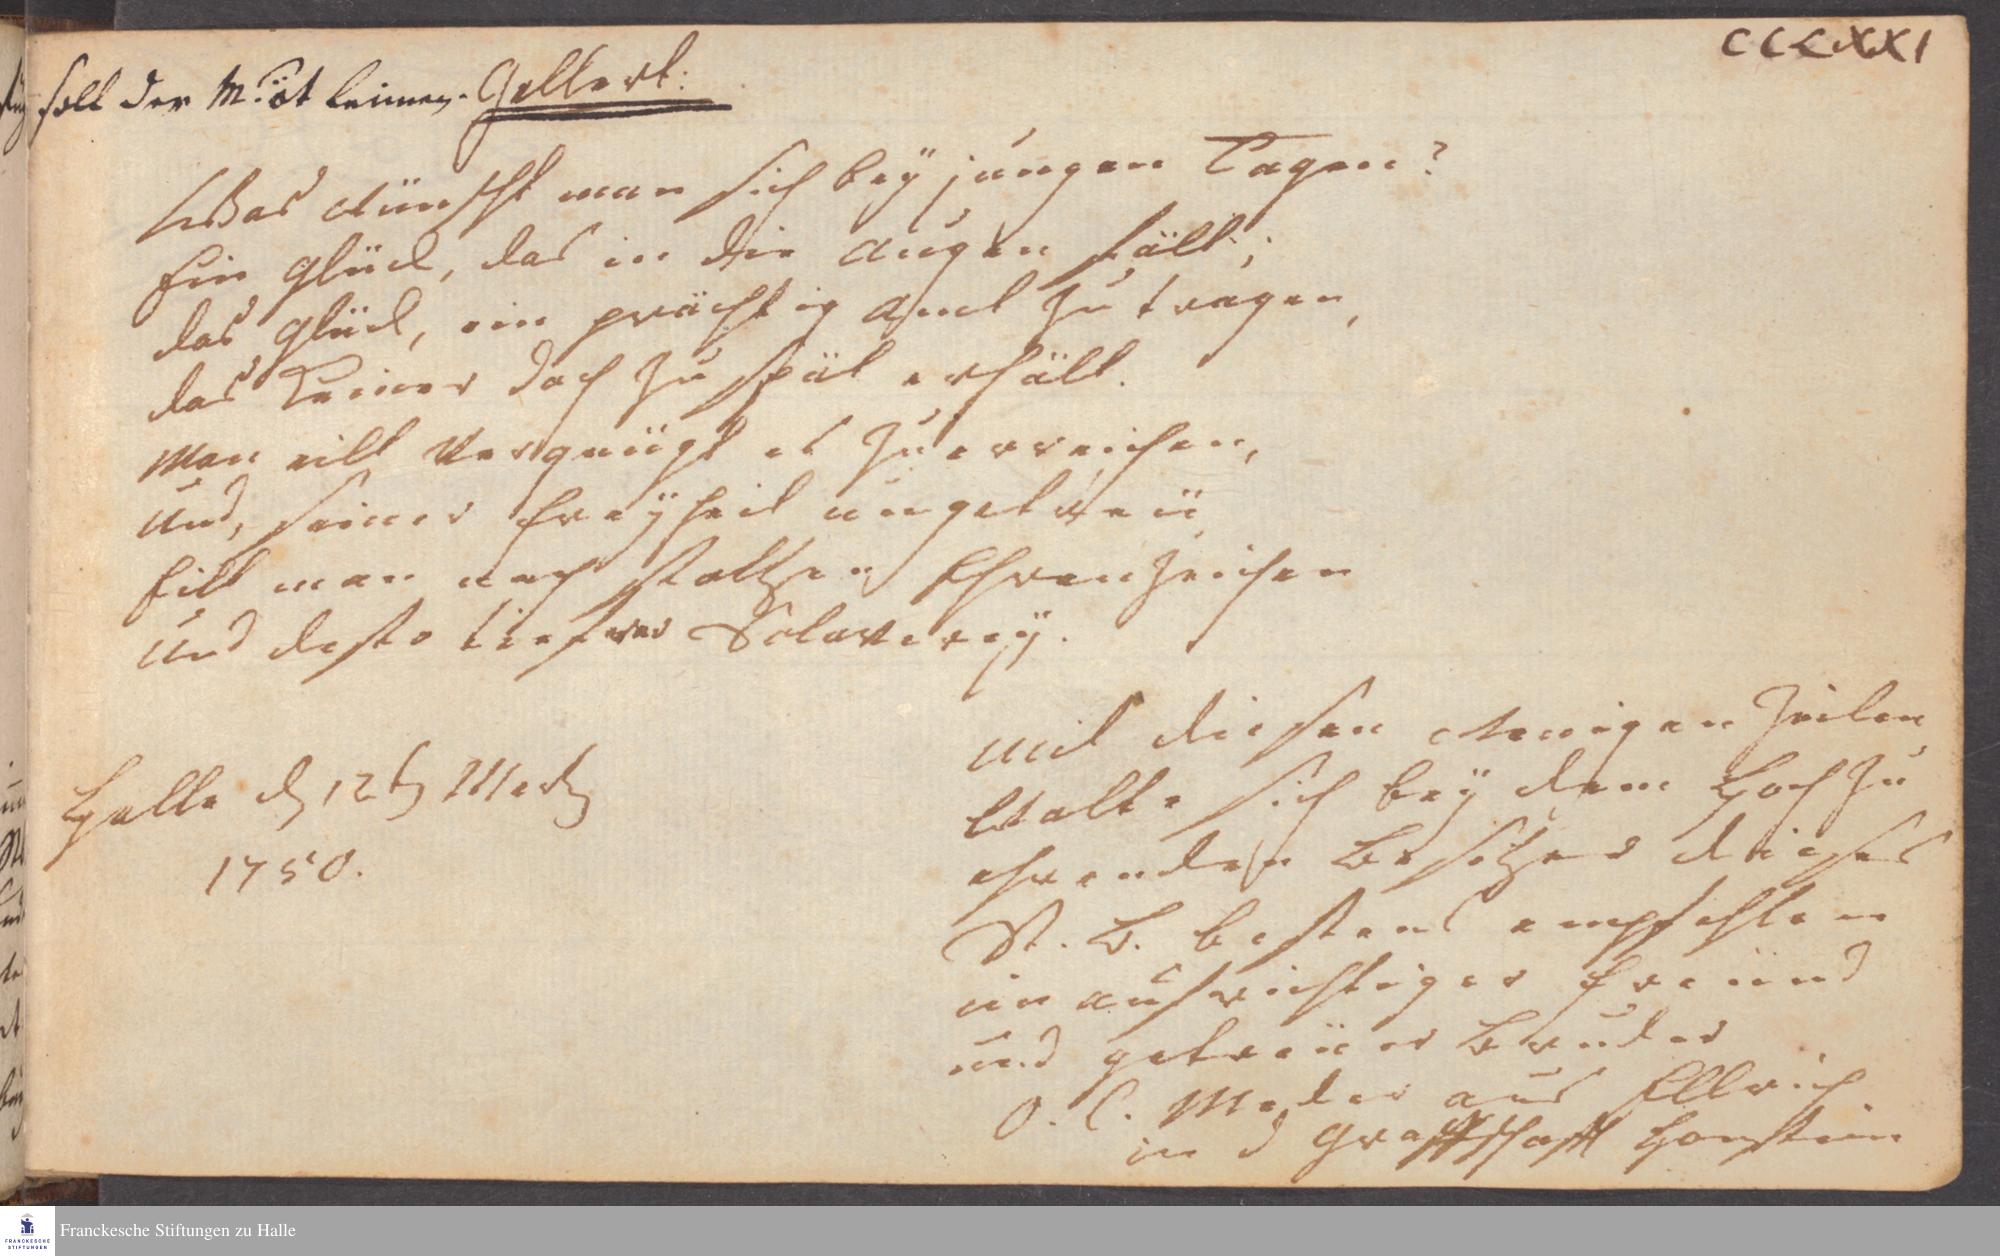 CCCXXI
soll der leimen. Gellert.
Was wünscht man sich bey jungen Tagen?
Ein Glück, das in die Augen fällt;
das Glück, ein prächtig Amt zu tragen,
das Keiner doch zu spät erhält.
Man eilt vergnügt es zu erreichen,
Und, seiner Freyheit ungetreü
Eilt man nach stoltzen Ehrenzeichen
Und desto tiefrer Sclaverey.
Halle d 12t Mertz
1750.
Mit diesen wenigen Zeilen
wolte sich bey dem Hoch zu
ehrenden Besitzer dieses
St. B. bestens empfehlen
ein aufrichtiger Freünd
und getreüer Bruder
O. C. Meder aus Ellrich
in d Graffschafft Honstein
Franckesche Stiftungen zu Halle
FRANCKESCHE
STIFTUNGEN